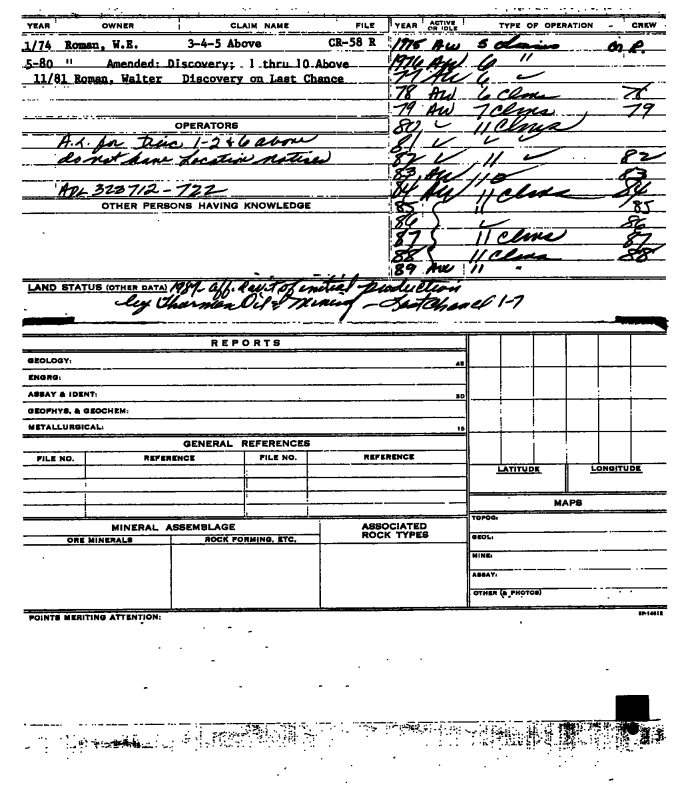 YEAR OWNER CLAIM NAME FILE
1/74 Roman, W.E. 3-4-5 Above CR-58 R
5-80 " Amended: Discovery; 1 thru 10 Above
11/81 Roman, Walter Discovery on Last Chance
OPERATORS
A.L. for Disc 1-2 & 6 above
do not have Location notices
ADL 323712-722
OTHER PERSONS HAVING KNOWLEDGE
YEAR ACTIVE OR IDLE TYPE OF OPERATION - CREW
1975 AW 5 claims
1976 AW 6 "
77 AW 6 ✓
78 AW 6 Clms 78
79 AW 7 Clms 79
80 ✓ 11 Clms
81 ✓ ✓ ✓
82 ✓ 11 ✓ 82
83 AW 11 83
84 AW 11 Clms 84
85 11 85
86 ✓ 86
87 11 Clms 87
88 11 Clms 88
89 AW 11 "
LAND STATUS (OTHER DATA) 1987 affidavit of initial production
by Thurman Oil & Mining - Last Chance 1-7
REPORTS
GEOLOGY: 45
ENGRG:
ASSAY & IDENT: 30
GEOPHYS. & GEOCHEM:
METALLURGICAL: 15
GENERAL REFERENCES
FILE NO. REFERENCE FILE NO. REFERENCE
LATITUDE LONGITUDE
MINERAL ASSEMBLAGE
ORE MINERALS ROCK FORMING, ETC.
ASSOCIATED ROCK TYPES
MAPS
TOPOG:
GEOL:
MINE:
ASSAY:
OTHER (& PHOTOS)
POINTS MERITING ATTENTION: